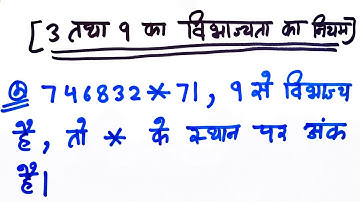 [3 तथा 9 का विभाज्यता का नियम]
Q 746832*71, 9 से विभाज्य
है, तो * के स्थान पर अंक
है।